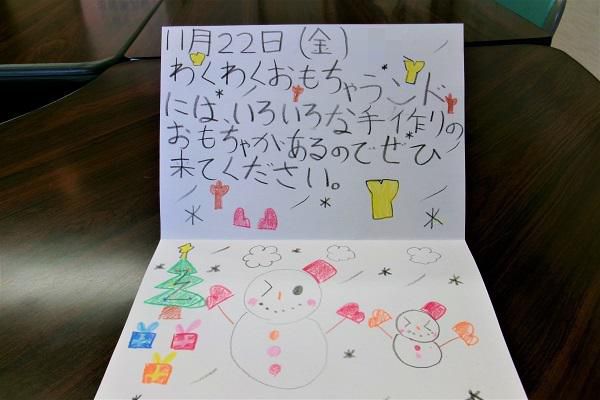 11月22日(金)
わくわくおもちゃランド
には、いろいろな手作りの
おもちゃがあるのでぜひ
来てください。